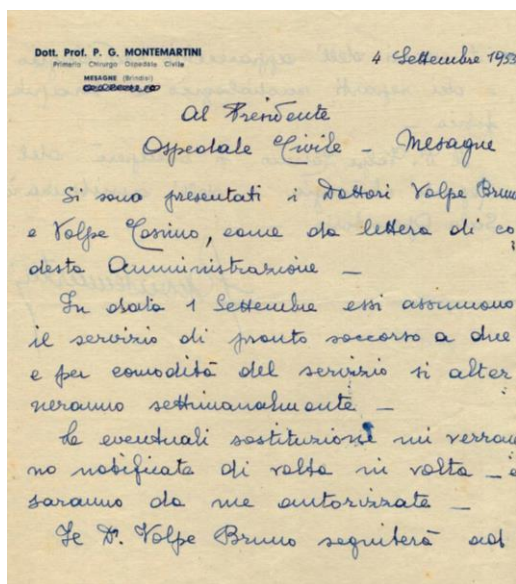 Dott. Prof. P. G. MONTEMARTINI
Primario Chirurgo Ospedale Civile
MESAGNE (Brindisi)
4 Settembre 1955
Al Presidente
Ospedale Civile – Mesagne
Si sono presentati i Dottori Volpe Bruno
e Volpe Cosimo, come da lettera di co
desta Amministrazione –
In data 1 Settembre essi assumono
il servizio di pronto soccorso a due
e per comodità del servizio si alter
neranno settimanalmente –
Le eventuali sostituzioni mi verran
no notificate di volta in volta – e
saranno da me autorizzate –
Il Dr. Volpe Bruno seguiterà ad